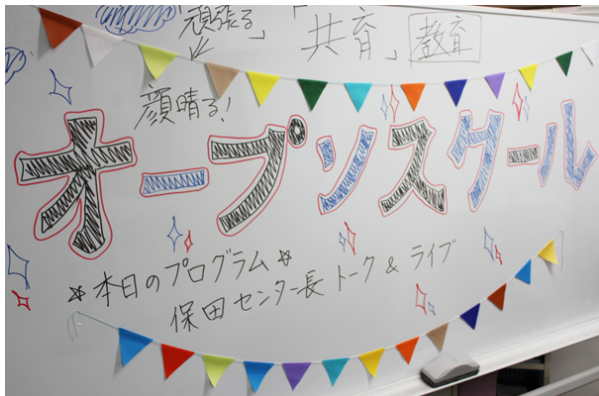 「頑張る」「共育」教育
顔晴る!
オープンスクール
☆本日のプログラム☆
保田センター長トーク&ライブ